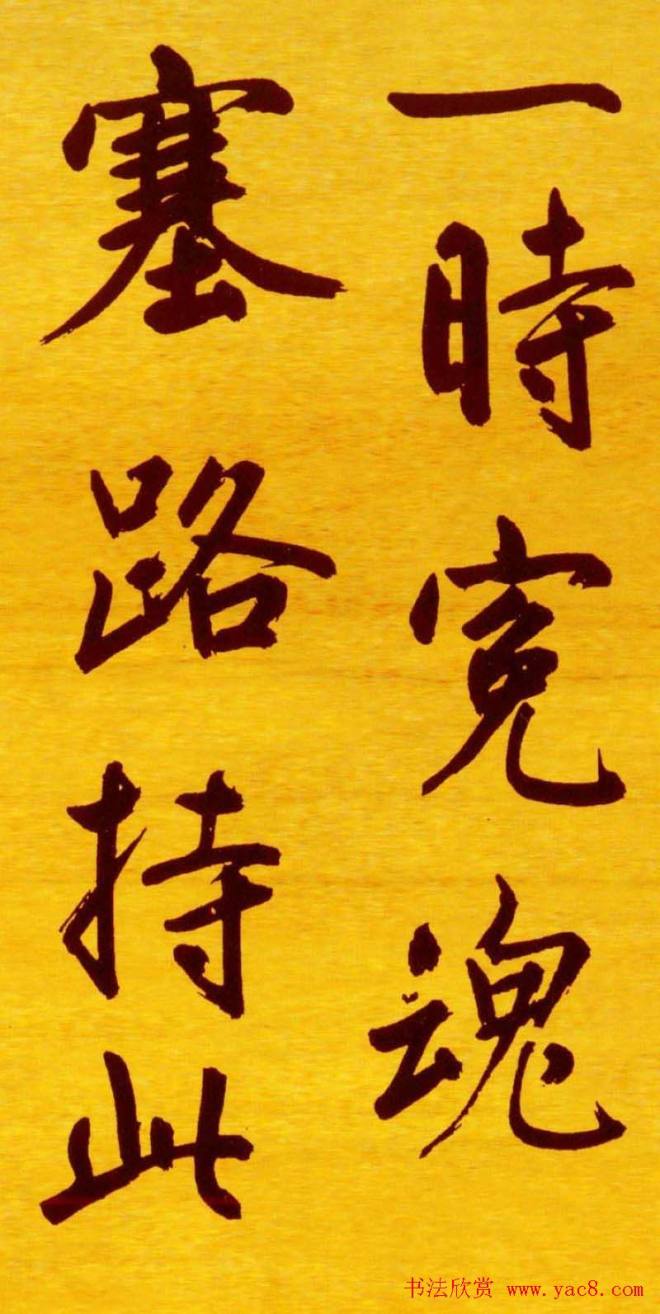 一時寃魂
塞路持此
书法欣赏 www.yac8.com